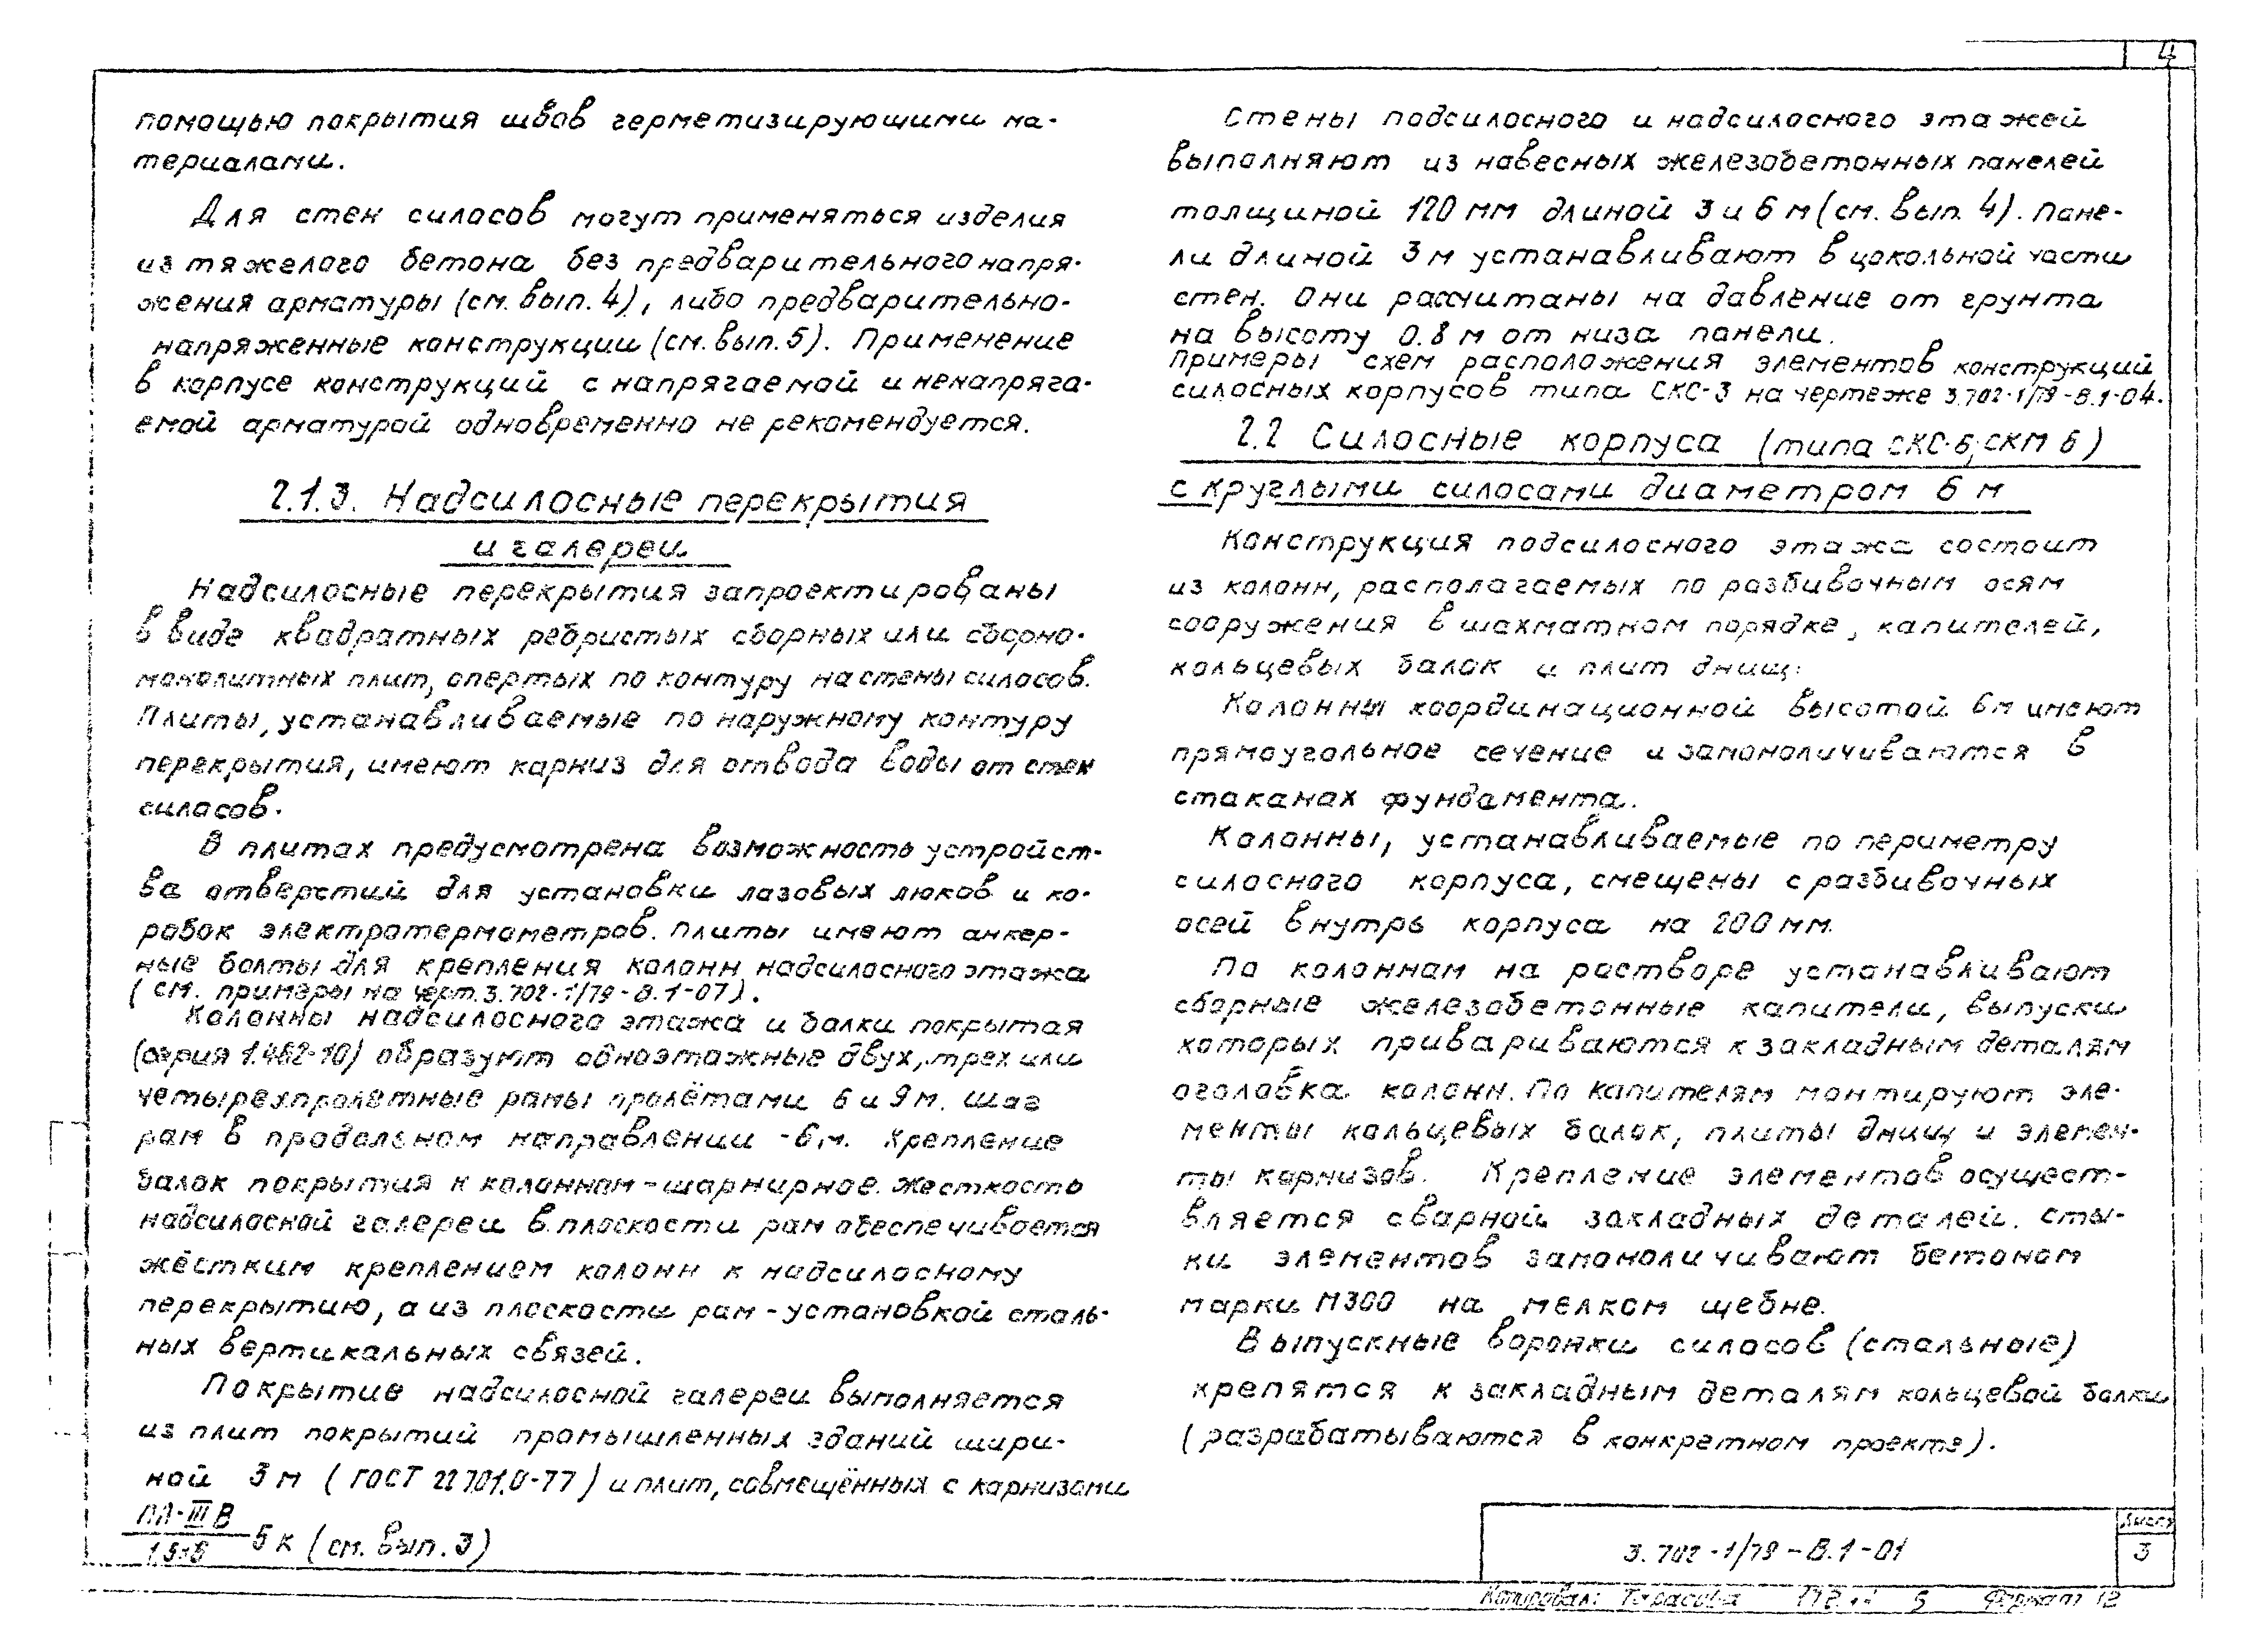 4
помощью покрытия швов герметизирующими ма-
териалами.
Для стен силосов могут применяться изделия
из тяжелого бетона без предварительного напря-
жения арматуры (см. вып. 4), либо предварительно-
напряженные конструкции (см. вып. 5). Применение
в корпусе конструкций с напрягаемой и ненапряга-
емой арматурой одновременно не рекомендуется.
2.1.3. Надсилосные перекрытия
и галереи
Надсилосные перекрытия запроектированы
в виде квадратных ребристых сборных или сборно-
монолитных плит, опертых по контуру на стены силосов.
Плиты, устанавливаемые по наружному контуру
перекрытия, имеют карниз для отвода воды от стен
силосов.
В плитах предусмотрена возможность устройст-
ва отверстий для установки лазовых люков и ко-
робок электротермометров. Плиты имеют анкер-
ные болты для крепления колонн надсилосного этажа
(см. примеры на черт. 3.702-1/79-В.1-07).
Колонны надсилосного этажа и балки покрытая
(серия 1.462-10) образуют одноэтажные двух, трех или
четырехпролетные рамы пролётами 6 и 9 м. Шаг
рам в продольном направлении - 6 м. Крепление
балок покрытия к колоннам - шарнирное. Жесткость
надсилосной галереи в плоскости рам обеспечивается
жёстким креплением колонн к надсилосному
перекрытию, а из плоскости рам - установкой сталь-
ных вертикальных связей.
Покрытие надсилосной галереи выполняется
из плит покрытий промышленных зданий шири-
ной 3 м (ГОСТ 22701.0-77) и плит, совмещённых с карнизами
ПЛ-III В
1.5х6 5к (см. вып. 3)
Стены подсилосного и надсилосного этажей
выполняют из навесных железобетонных панелей
толщиной 120 мм длиной 3 и 6 м (см. вып. 4). Пане-
ли длиной 3 м устанавливают в цокольной части
стен. Они рассчитаны на давление от грунта
на высоту 0.8 м от низа панели.
Примеры схем расположения элементов конструкций
силосных корпусов типа СКС-3 на чертеже 3.702-1/79-В.1-04.
2.2 Силосные корпуса (типа СКС-6, СКМ 6)
с круглыми силосами диаметром 6 м
Конструкция подсилосного этажа состоит
из колонн, располагаемых по разбивочным осям
сооружения в шахматном порядке, капителей,
кольцевых балок и плит днищ.
Колонны координационной высотой 6 м имеют
прямоугольное сечение и замоноличиваются в
стаканах фундамента.
Колонны, устанавливаемые по периметру
силосного корпуса, смещены с разбивочных
осей внутрь корпуса на 200 мм.
По колоннам на растворе устанавливают
сборные железобетонные капители, выпуски
которых привариваются к закладным деталям
оголовка колонн. По капителям монтируют эле-
менты кольцевых балок, плиты днищ и элемен-
ты карнизов. Крепление элементов осущест-
вляется сваркой закладных деталей. Сты-
ки элементов замоноличивают бетоном
марки М300 на мелком щебне.
Выпускные воронки силосов (стальные)
крепятся к закладным деталям кольцевой балки
(разрабатываются в конкретном проекте).
3.702-1/79-В.1-01
Лист
3
Копировал: Тарасова 5 Формат 12